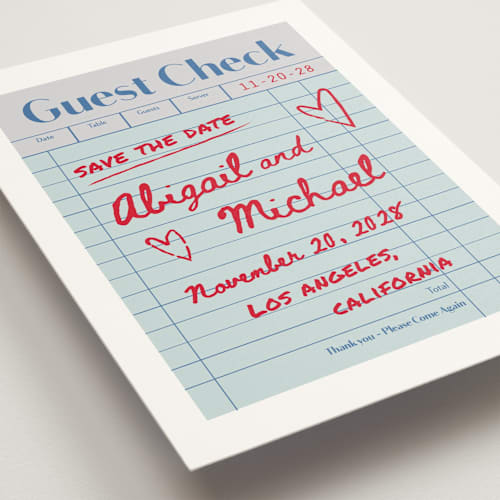 Guest Check
Date Table Guests Server 11-20-28
SAVE THE DATE
Abigail and
Michael
November 20, 2028
LOS ANGELES,
CALIFORNIA
Total
Thank you - Please Come Again